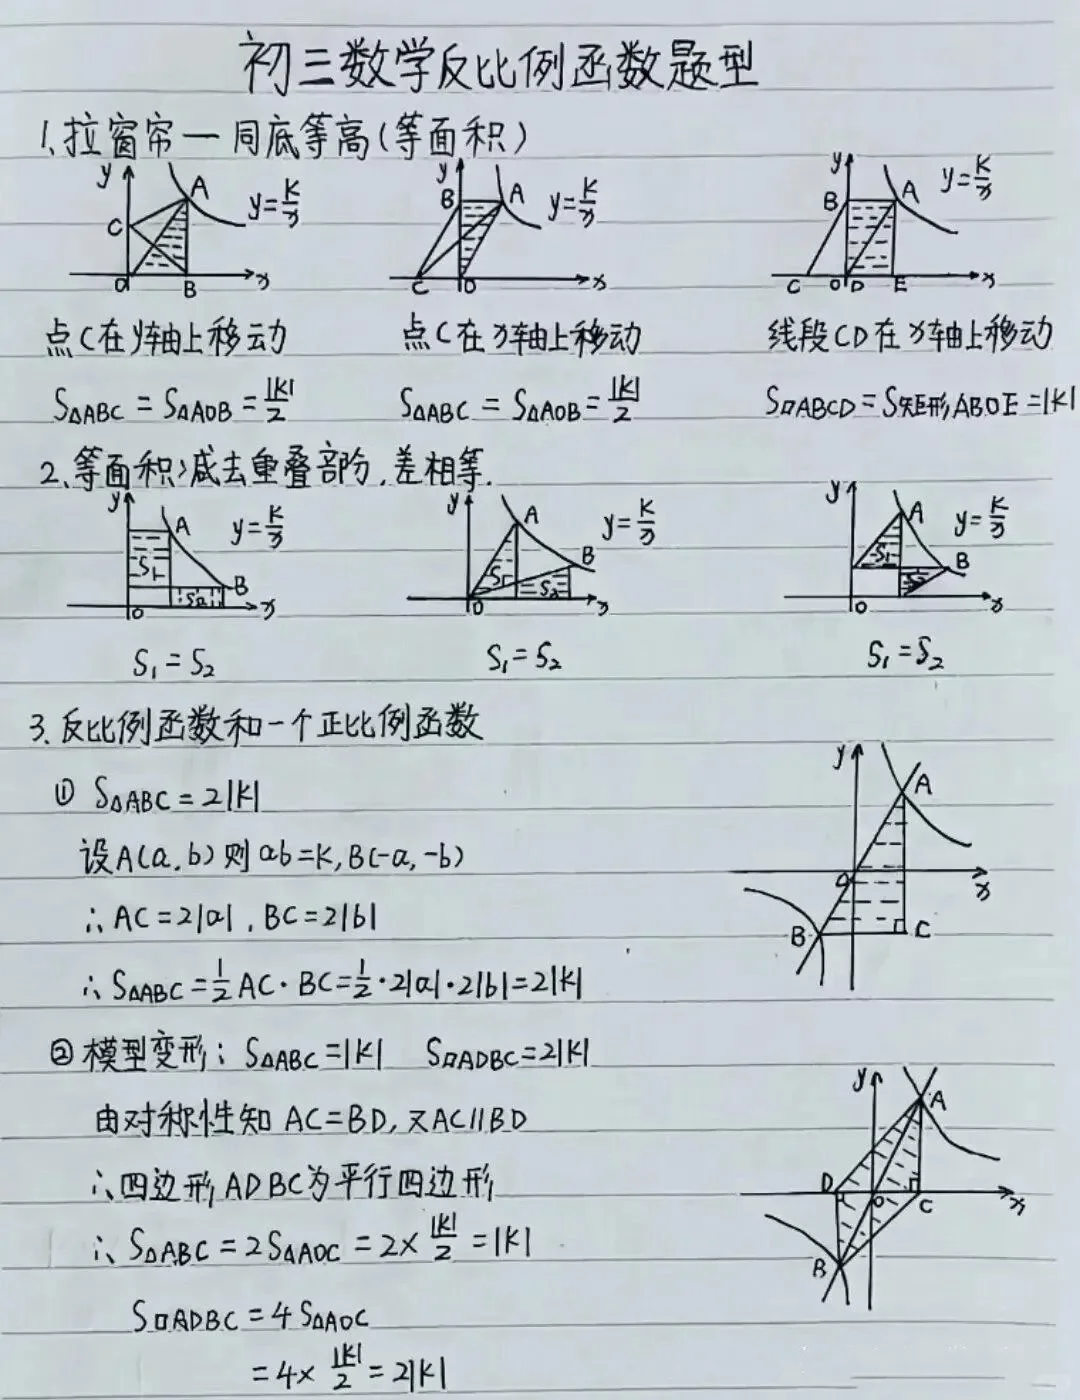 初三数学反比例函数题型
1、拉窗帘一同底等高(等面积)
y A y=K/x C O B x
y B A y=K/x C O x
y B A y=K/x C O D E x
点C在y轴上移动 点C在x轴上移动 线段CD在x轴上移动
S△ABC = S△AOB = |K|/2 S△ABC = S△AOB = |K|/2 S▱ABCD = S矩形ABOE = |K|
2、等面积减去重叠部分,差相等.
y A y=K/x S₁ S₂ B O x
y A y=K/x S₁ S₂ B O x
y A y=K/x S₁ S₂ B O x
S₁ = S₂ S₁ = S₂ S₁ = S₂
3、反比例函数和一个正比例函数
① S△ABC = 2|K|
设A(a,b)则ab=K,B(-a,-b)
∴ AC=2|a|,BC=2|b|
∴ S△ABC = 1/2 AC·BC = 1/2·2|a|·2|b| = 2|K|
y A O x B C
② 模型变形: S△ABC = |K| S▱ADBC = 2|K|
由对称性知 AC=BD,又AC∥BD
∴四边形ADBC为平行四边形
∴ S△ABC = 2S△AOC = 2×|K|/2 = |K|
S▱ADBC = 4S△AOC
= 4×|K|/2 = 2|K|
y A D O C x B